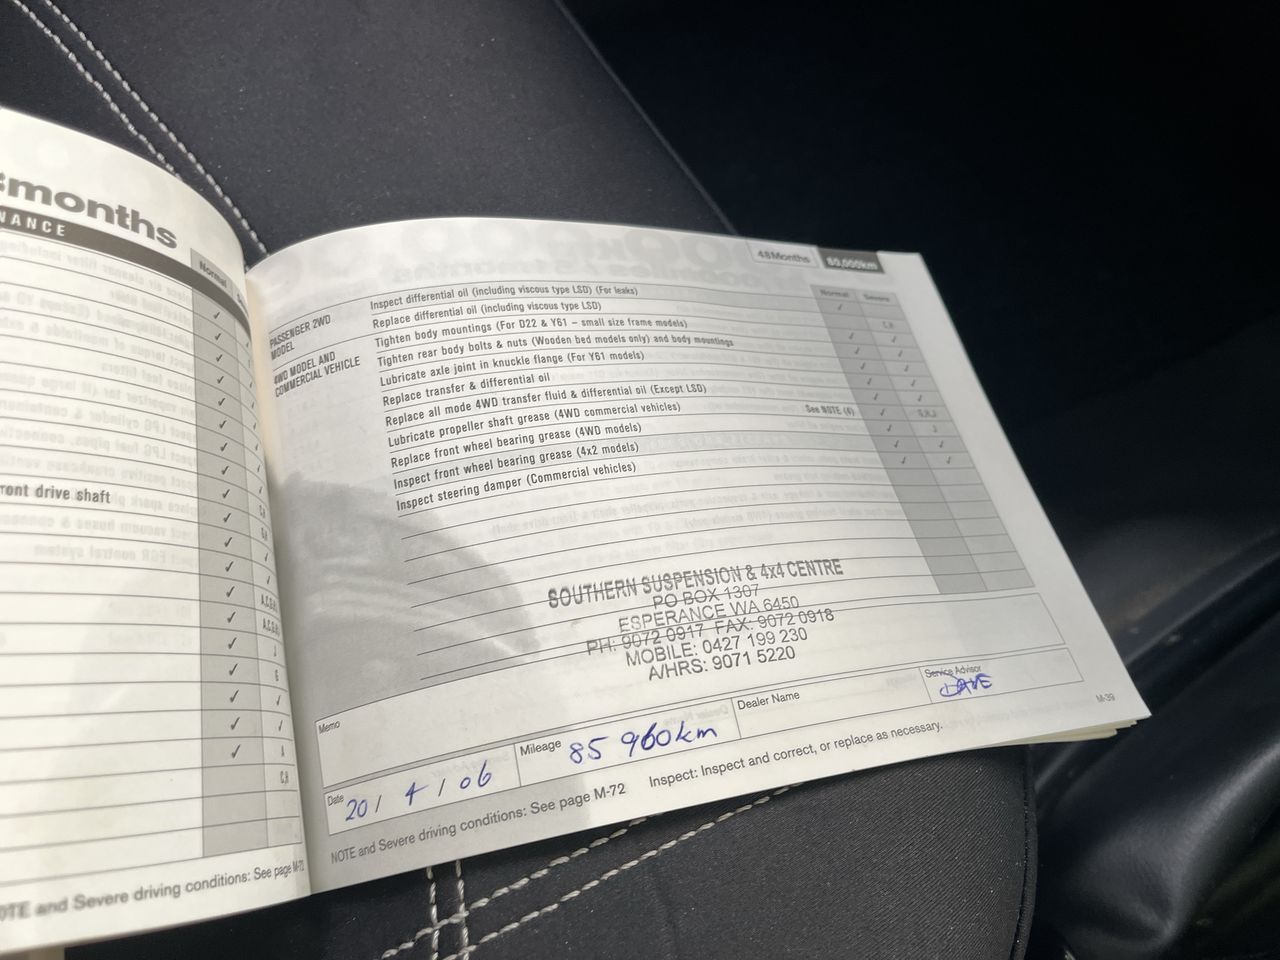 months
NANCE
Normal
ront drive shaft
OTE and Severe driving conditions: See page M-72
48Months 80,000km
Normal Severe
PASSENGER 2WD MODEL
4WD MODEL AND COMMERCIAL VEHICLE
Inspect differential oil (including viscous type LSD) (For leaks)
Replace differential oil (including viscous type LSD)
Tighten body mountings (For D22 & Y61 – small size frame models)
Tighten rear body bolts & nuts (Wooden bed models only) and body mountings
Lubricate axle joint in knuckle flange (For Y61 models)
Replace transfer & differential oil
Replace all mode 4WD transfer fluid & differential oil (Except LSD)
Lubricate propeller shaft grease (4WD commercial vehicles) See NOTE (4)
Replace front wheel bearing grease (4WD models)
Inspect front wheel bearing grease (4x2 models)
Inspect steering damper (Commercial vehicles)
SOUTHERN SUSPENSION & 4x4 CENTRE
PO BOX 1307
ESPERANCE WA 6450
PH: 9072 0917 FAX: 9072 0918
MOBILE: 0427 199 230
A/HRS: 9071 5220
Memo
Date 20/4/06 Mileage 85 960km Dealer Name Service Advisor DAVE
NOTE and Severe driving conditions: See page M-72 Inspect: Inspect and correct, or replace as necessary.
M-39